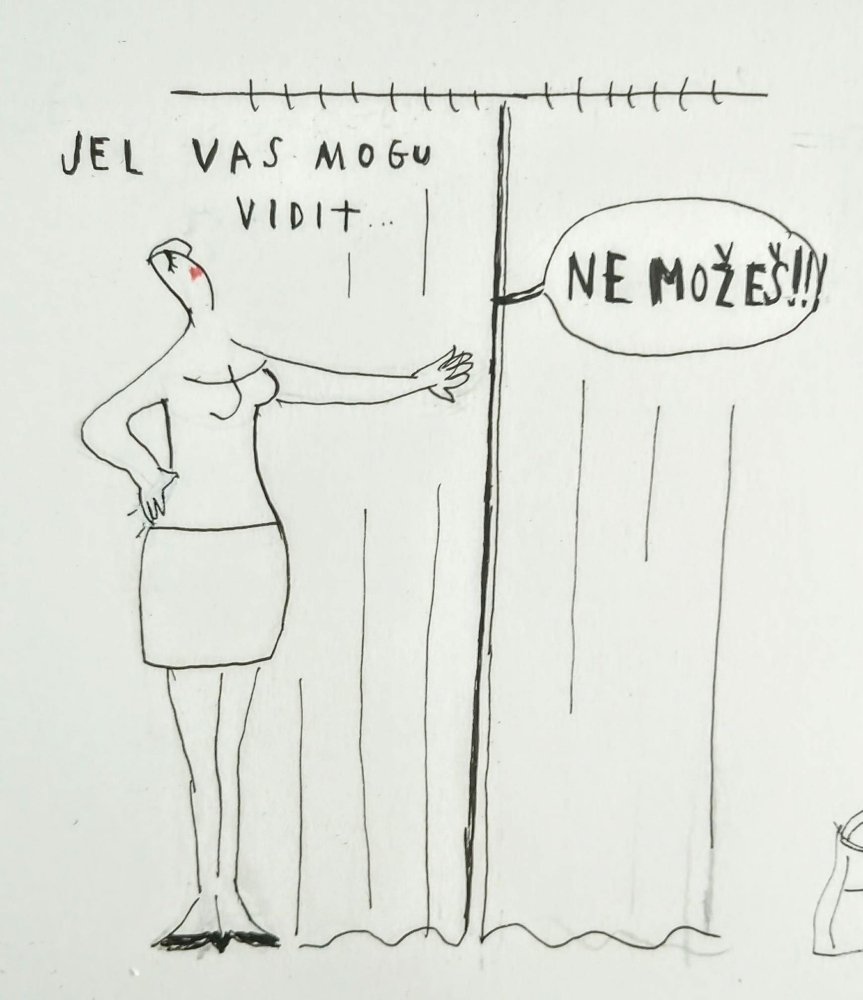 JEL VAS MOGU
VIDIT...
NE MOŽEŠ!!!